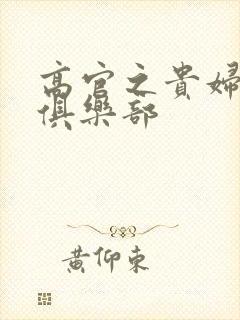 高官之貴婦
俱樂部
黃仰東